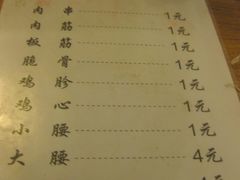 肉串 1元
肉筋 1元
板筋 1元
脆骨 1元
鸡胗 1元
鸡心 1元
小腰 1元
大腰 4元